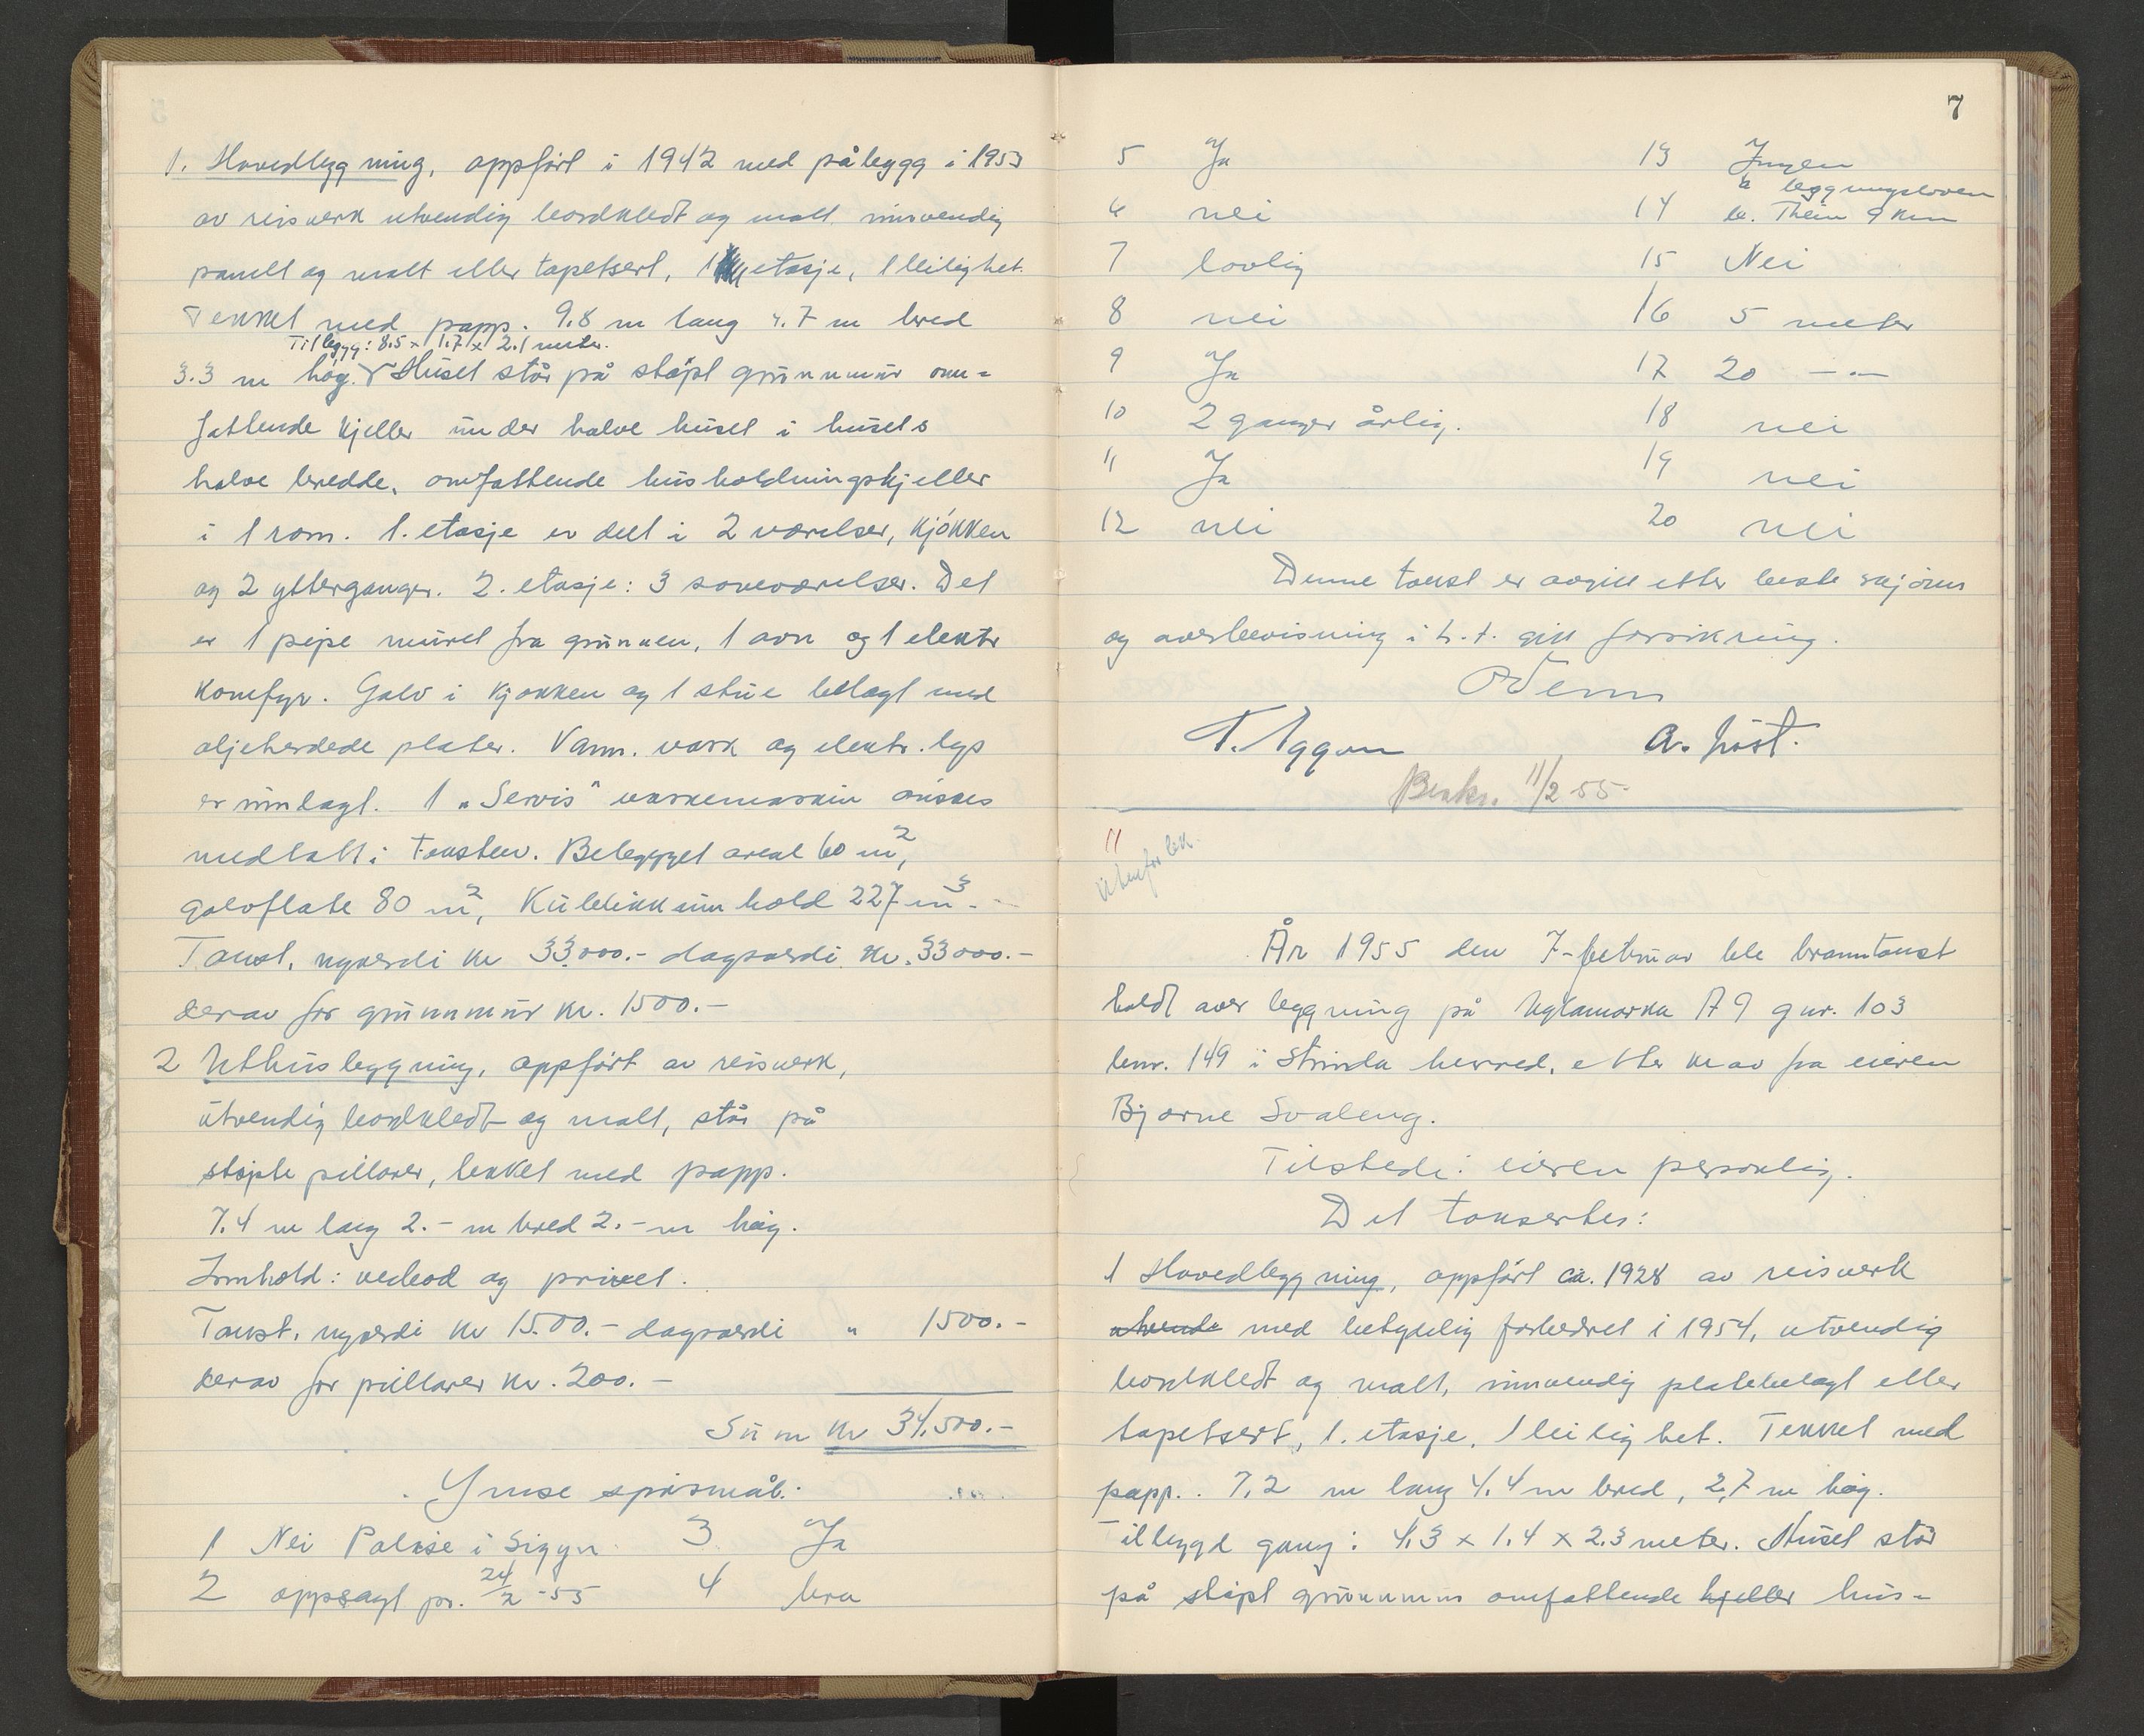 1. Hovedbygning, oppført i 1942 med påbygg i 1953
av reisverk utvendig bordkledt og malt innvendig
panelt og malt eller tapetsert, 1 etasje, 1 leilighet.
Tekket med papp. 9.8 m lang 4.7 m bred
Tilbygg: 8.5 x 1.7 x 2.1 meter.
3.3 m høg. Huset står på støpt grunnmur om=
fattende kjeller under halve huset i husets
halve bredde, omfattende husholdningskjeller
i 1 rom. 1. etasje er delt i 2 værelser, kjøkken
og 2 ytterganger. 2. etasje: 3 soveværelser. Det
er 1 pipe muret fra grunnen, 1 ovn og 1 elektr
komfyr. Golv i kjøkken og 1 stue belagt med
oljeherdede plater. Vann. vask og elektr. lys
er innlagt. 1 „Servis" vaskemaskin ønskes
medtatt i taksten. Bebygget areal 60 m²,
golvflate 80 m², Kubikkinnhold 227 m³.-
Takst, nyverdi kr 33000.- dagsverdi kr. 33000.-
derav for grunnmur kr. 1500.-
2 Uthusbygning, oppført av reisverk,
utvendig bordkledt og malt, står på
støpte pillarer, tekket med papp.
7.4 m lang 2.- m bred 2.- m høg.
Innhold: vedbod og privet.
Takst, nyverdi kr 1500.- dagsverdi " 1500.-
derav for pillarer kr. 200.-
Sum kr 34.500.-
Ymse spørsmål:
1 Nei Polise i Sigyn 3 Ja
2 oppsagt pr. 24/2-55 4 bra
7
5 Ja 13 Ingen
bygningsloven
6 nei 14 br. 9 km
7 lovlig 15 Nei
8 nei 16 5 meter
9 Ja 17 20 -"-
10 2 ganger årlig. 18 nei
11 Ja 19 nei
12 nei 20 nei
Denne takst er avgitt etter beste skjønn
og overbevisning i h.t. gitt forsikring.
A. Høst.
Beskr. 11/2 55
11
Utenfor bek.
År 1955 den 7-februar ble branntakst
holdt over bygning på Uglamarka A 9 gnr. 103
bnr. 149 i Strinda herred, etter krav fra eieren
Bjarne Svaleng.
Tilstede: eieren personlig.
Det taksertes:
1 Hovedbygning, oppført ca. 1928 av reisverk
utvendi med betydelig forbedret i 1954, utvendig
bordkledt og malt, innvendig platebelagt eller
tapetsert, 1. etasje, 1 leilighet. Tekket med
papp.. 7,2 m lang 4.4 m bred, 2,7 m høg.
Tilbygd gang: 4.3 x 1.4 x 2.3 meter. Huset står
på støpt grunnmur omfattende kjeller hus=